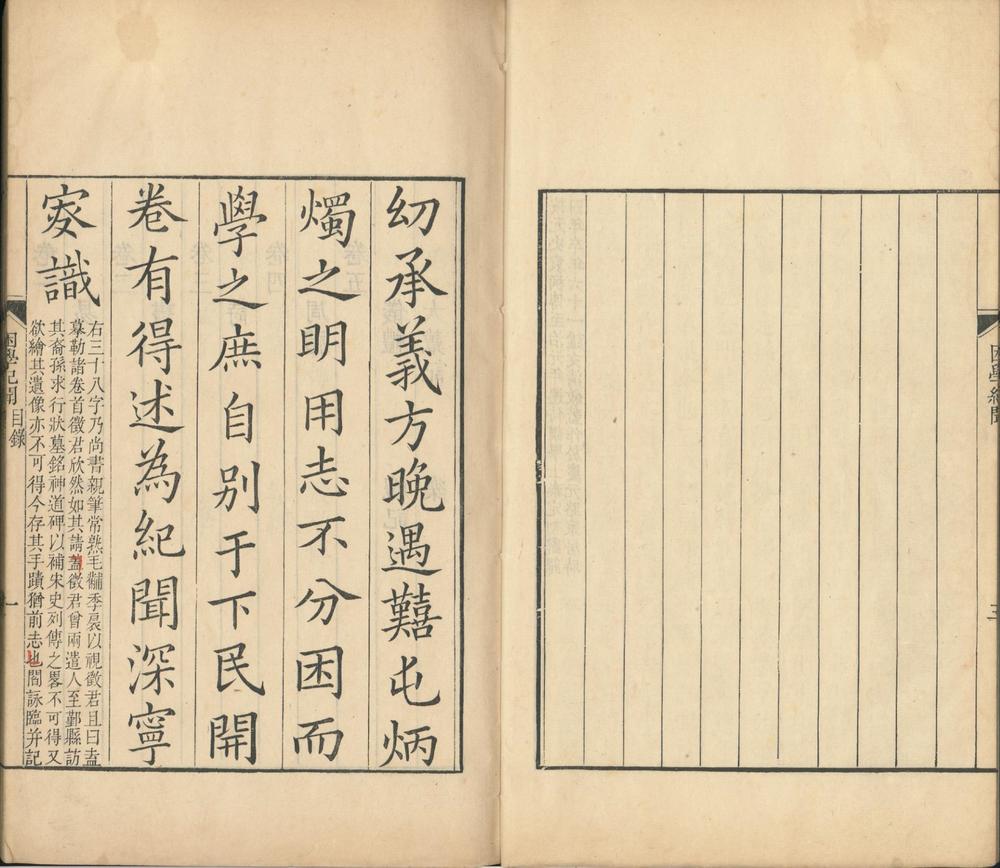 困學紀聞
三
㓜承義方晚遇囏屯炳
燭之眀用志不分困而
學之庶自别于下民開
卷有得述為紀聞深寧
叜識
右三十八字乃尚書親筆常熟毛黼季扆以視徵君且曰盍
摹勒諸卷首徵君欣然如其請蓋徵君曾兩遣人至鄞縣訪
其裔孫求行狀墓銘神道碑以補宋史列傳之畧不可得又
欲繪其遺像亦不可得今存其手蹟猶前志也閻詠臨并記
困學紀聞 目錄
一